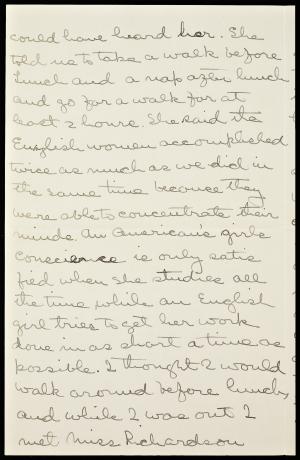 could have heard her. She
told us to take a walk before
lunch and a nap after lunch
and go for a walk for at
least 2 hours. She said the
English women accomplished
twice as much as we did in
the same time because they
were able to concentrate their
minds. An American's girls
conscience is only satis
fied when she studies all
the time while an English
girl tries to get her work
done in as short a time as
possible. I thought I would
walk around before lunch,
and while I was out I
met Miss Richardson